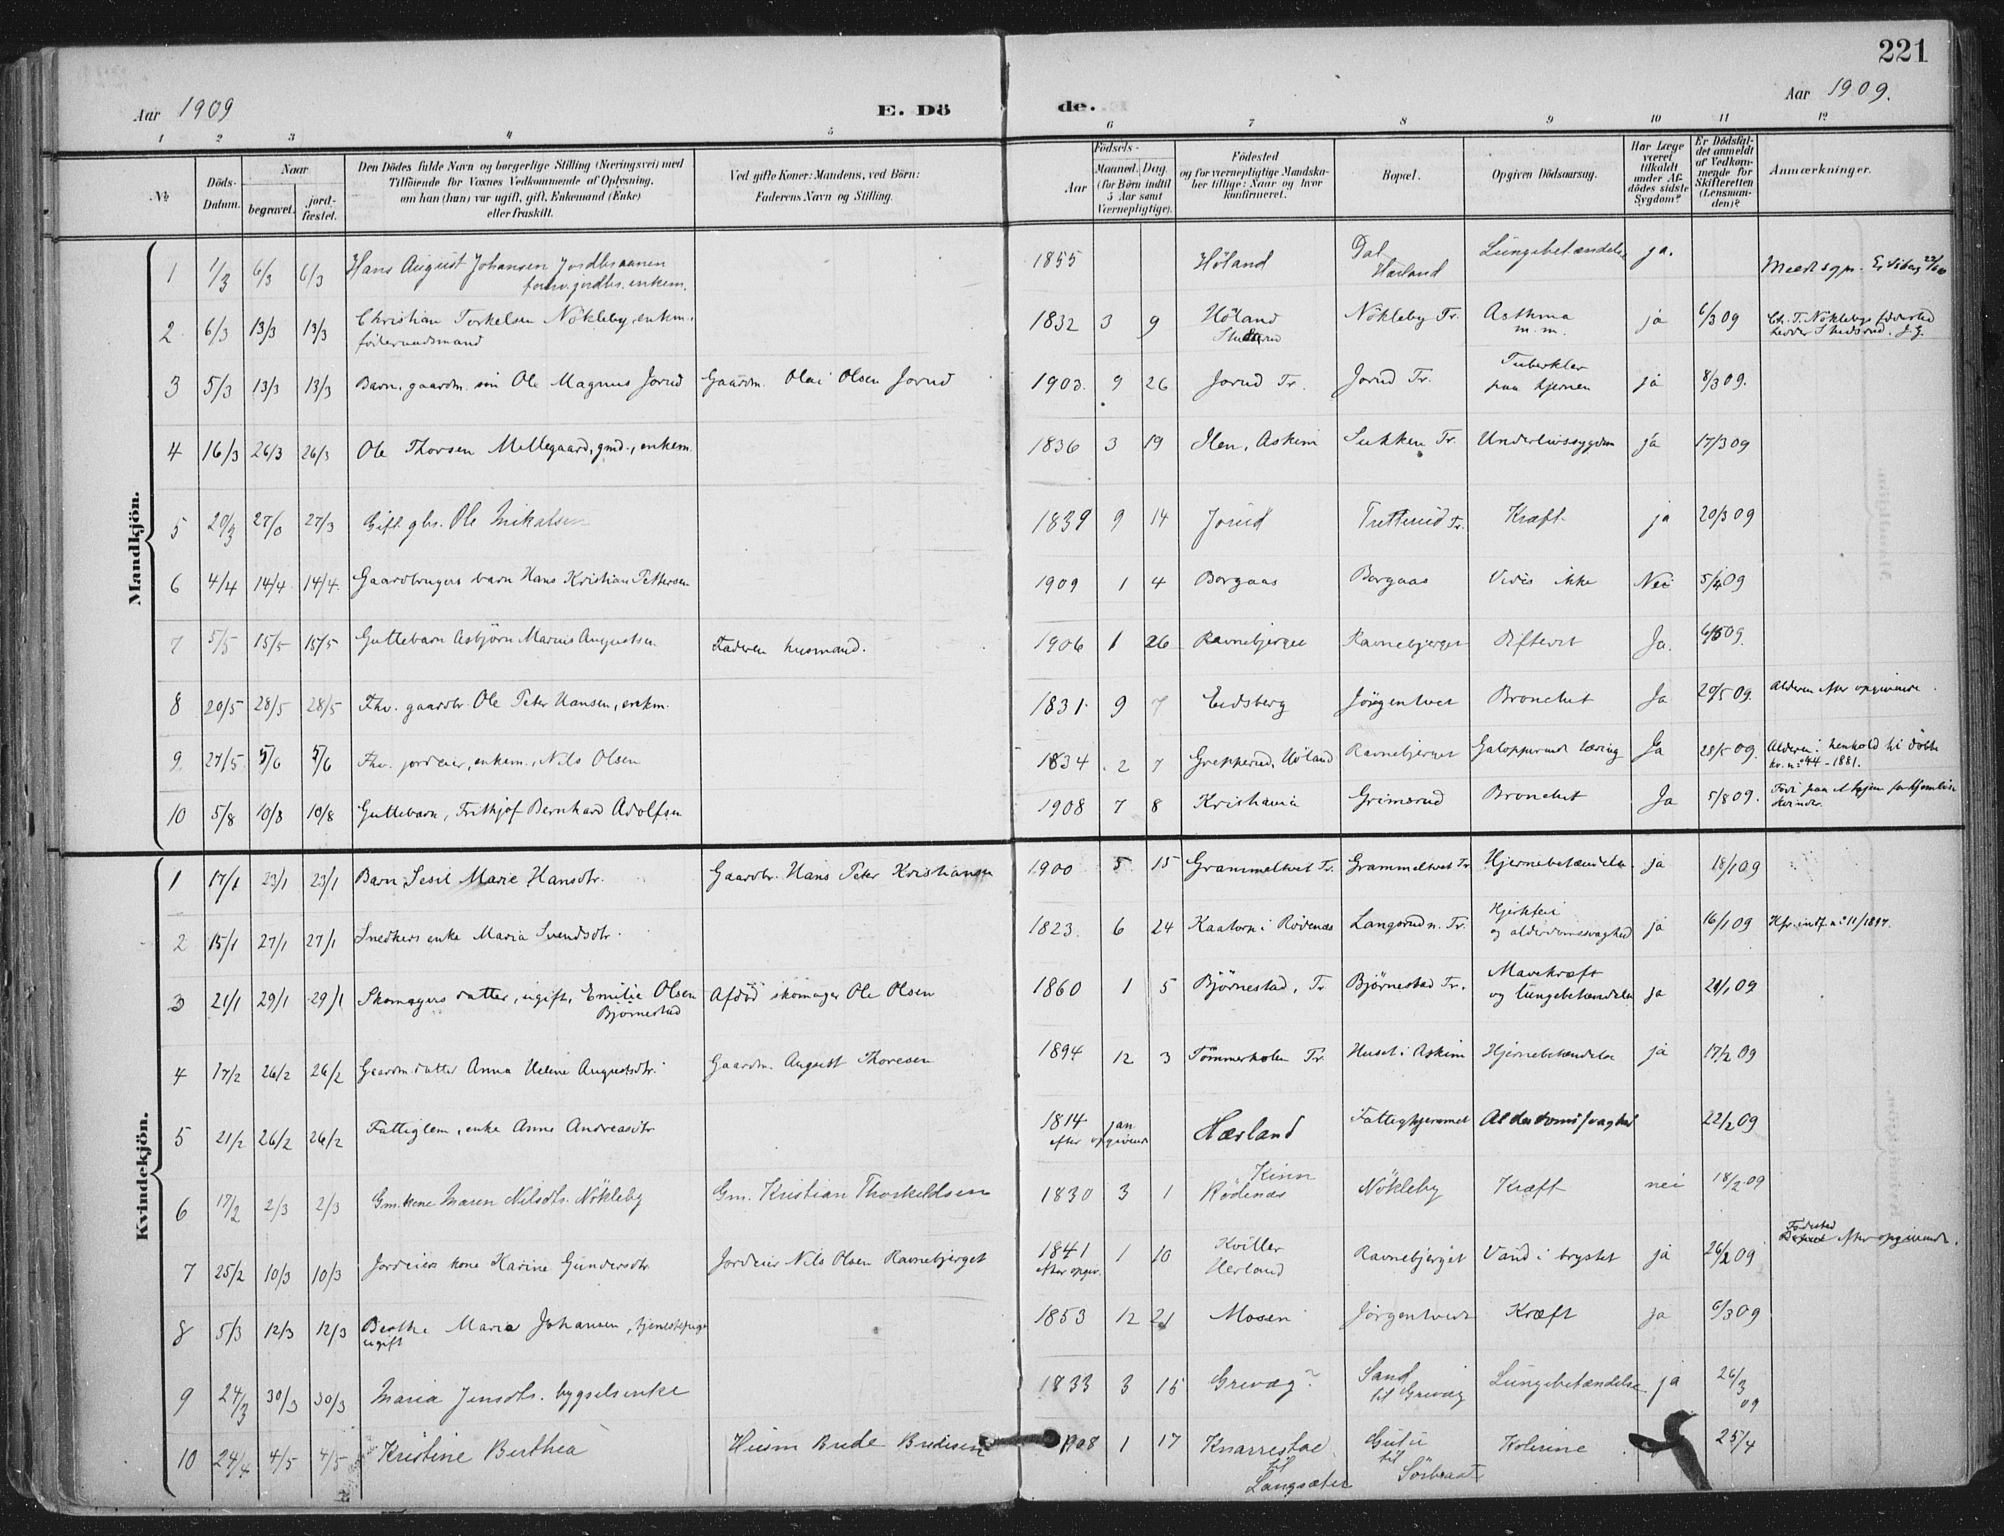 221
Aar 1909
E. Dö
de.
Aar 1909.
1 2 3 4 5 6 7 8 9 10 11 12
№
Döds-
Datum.
Naar
begravet.
jord-
fæstet.
Den Dödes fulde Navn og borgerlige Stilling (Næringsvei) med
Tilföiende for Voxnes Vedkommende af Oplysning,
om han (hun) var ugift, gift, Enkemand (Enke)
eller fraskilt.
Ved gifte Koner: Mandens, ved Börn:
Faderens Navn og Stilling.
Födsels-
Aar
Maaned. Dag.
(for Börn indtil
5 Aar samt
Værnepligtige).
Födested
og for værnepligtige Mandska-
ber tillige: Naar og hvor
konfirmeret.
Bopæl.
Opgiven Dödsaarsag.
Har Læge
været
tilkaldt
under Af-
dödes sidste
Sygdom?
Er Dödsfal-
det anmeldt
af Vedkom-
mende for
Skifteretten
(Lensman-
den)?
Anmærkninger.
Mandkjön.
1 1/3 6/3 6/3 Hans August Johansen 1855 Höland Dal Lungebetændelse ja.
forhv. jordbr. enkem. Hærland
2 6/3 13/3 13/3 Christian Torkelsen Nökleby, enkm. 1832 3 9 Höland Nökleby Tr. Asthma ja 6/3 09 Ch. T. Nöklebys födested
föderaadsmand m.m.
3 5/3 13/3 13/3 Barn, gaardm. sön Ole Magnus Jorud Gaardm. Olai Olsen Jorud 1903. 9 26 Jorud Tr. Jorud Tr. Tuberkler ja 8/3 09.
paa hjernen
4 16/3 26/3 26/3 Ole Thorsen Mellegaard, gmd., enkem. 1836 3 19 Ilen, Askim Sukken Tr. Underlivssygdom ja 17/3 09
5 20/3 27/3 27/3 Gift gbr. Ole Mikalsen 1839 9 14 Jorud Tutterud Tr. Kræft ja 20/3 09
6 4/4 14/4 14/4 Gaardbrugers barn Hans Kristian Pettersen 1909 1 4 Borgaas Borgaas Vides ikke Nei 5/4 09
7 5/5 15/5 15/5 Guttebarn Asbjörn Marius Augustsen Faderen husmand. 1906 1 26 Ravnebjerget Ravnebjerget Difterit Ja. 6/5 09.
8 20/5 28/5 28/5 Fhv. gaardbr. Ole Peter Hansen, enkm. 1831 9 7 Eidsberg Jörgentvet Bronchit Ja 20/5 09 Alderen efter opgivende.
9 27/5 5/6 5/6 Fhv. jordeier, enkem., Nils Olsen 1834 2 7 Grepperud, Höland Ravnebjerget Galopperende tæring Ja 28/5 09. Alderen i henhold til
10 5/8 10/8 10/8 Guttebarn, Frithjof Bernhard Adolfsen 1908 7 8 Kristiania Grimsrud Bronchit Ja 5/8 09.
Kvindekjön.
1 17/1 23/1 23/1 Barn Sesil Marie Hansdtr. Gaardbr. Hans Peter Kristiansen 1900 5 15 Grammeltvet Tr. Grammeltvet Tr. Hjernebetændelse. ja 18/1 09
2 15/1 27/1 27/1 Snedkers enke Maria Svendsdtr. 1823. 6 24 Kaatorn i Rödenæs Langsrud n. Tr. Hjertefeil ja 16/1 09
og alderdomssvaghed
3 21/1 29/1 29/1 Skomagers datter, ugift, Emilie Olsen Afdöd skomager Ole Olsen 1860 1 5 Björnestad, Tr Björnestad Tr. Mavekræft ja 21/1 09
Björnestad og lungebetændelse
4 17/2 26/2 26/2 Gaardm. datter Anna Helene Augustsdtr. Gaardm. August Thoresen 1894 12 3 Tömmerholen Tr. Huset i Askim Hjernebetændelse ja 17/2 09
5 21/2 26/2 26/2 Fattiglem, enke Anne Andreasdtr 1814 jan Hærland Fattighjemmet Alderdomssvaghed 22/2 09
efter opgivende
6 17/2 2/3 2/3 Gm. kone Maren Nilsdtr. Nökleby Gm. Kristian Thorkeldsen 1830 3 1 Kinn Rödenæs Nökleby Kræft nei 18/2 09
7 25/2 10/3 10/3 Jordeiers kone Karine Gundersdtr Jordeier Nils Olsen Ravnebjerget 1841 1 10 Kviller Ravnebjerget Vand i brystet ja 26/2 09 Födested efter opgivende.
efter opgiv. Herland
8 5/3 12/3 12/3 Berthe Maria Johansen, tjenestepige 1853 12 21 Mosen Jörgentvedt Kræft ja 6/3 09
ugift
9 24/3 30/3 30/3 Maria Jensdtr. bygselsenke 1833 3 15 Grevag? Sand Lungebetændelse ja 26/3 09
til Grevag
10 24/4 4/5 4/5 Kristine Berthea 1908 1 17 Knarrestad 25/4
til
Langsæter